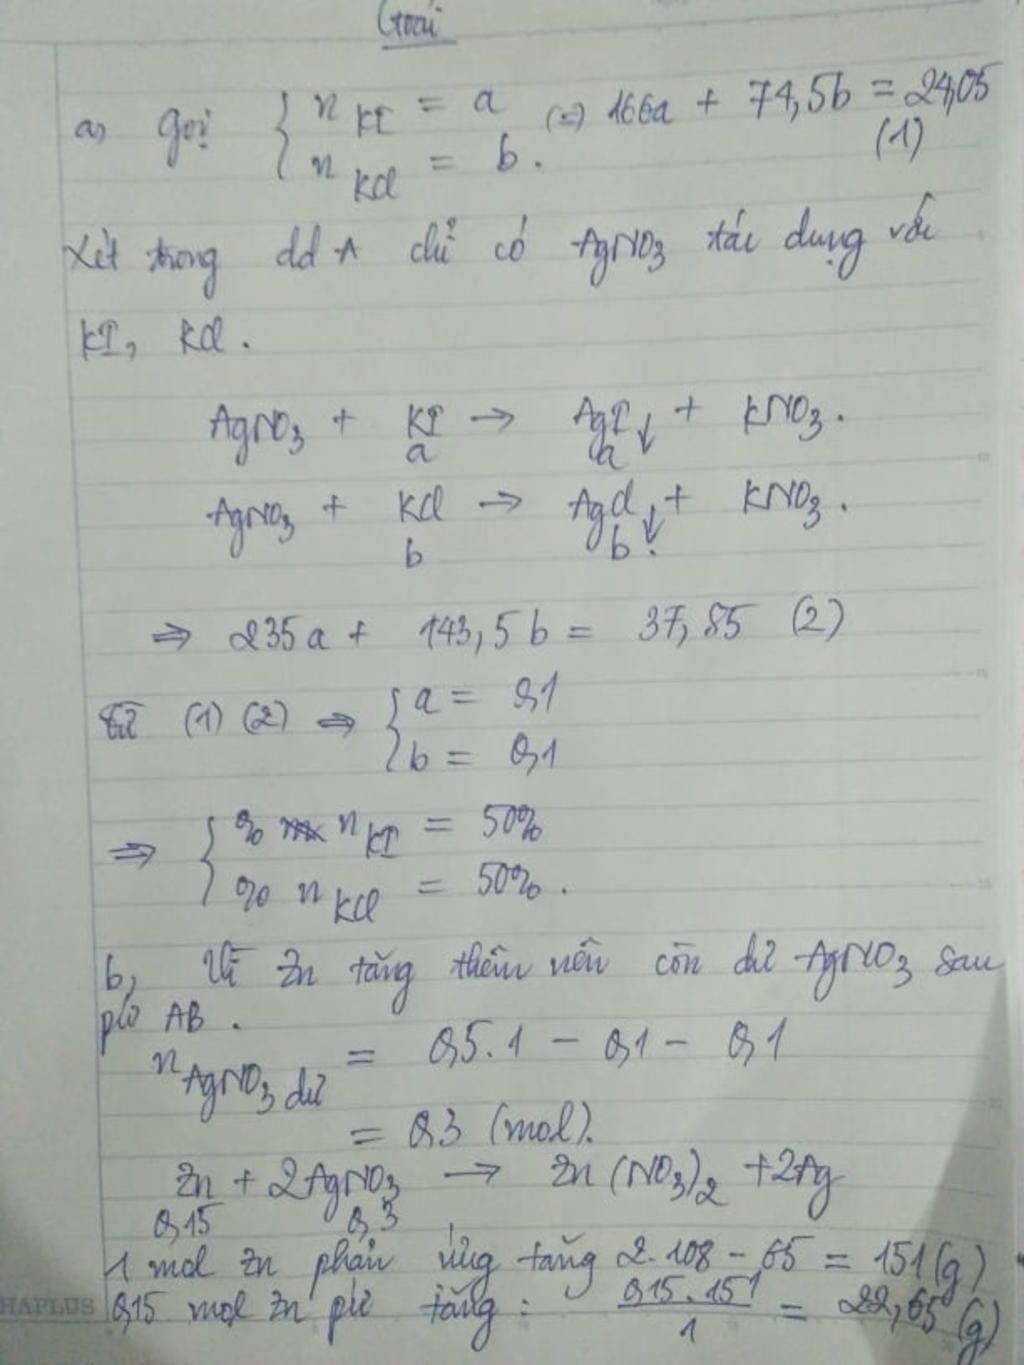 Giải
a, Gọi { n KI = a (=) 166a + 74,5b = 24,05
n KCl = b. (1)
Xét trong dd A chỉ có AgNO3 tác dụng với
KI, KCl.
AgNO3 + KI → AgI↓ + KNO3.
a a
AgNO3 + KCl → AgCl↓ + KNO3.
b b.
⇒ 235a + 143,5b = 37,85 (2)
Từ (1) (2) ⇒ { a = 0,1
b = 0,1
⇒ { % n KI = 50%
% n KCl = 50%.
b, Vì Zn tăng thêm nên còn dư AgNO3 sau
pứ AB.
n AgNO3 dư = 0,5.1 - 0,1 - 0,1
= 0,3 (mol).
Zn + 2AgNO3 → Zn(NO3)2 + 2Ag
0,15 0,3
1 mol Zn phản ứng tăng 2.108 - 65 = 151(g)
HAPLUS 0,15 mol Zn pứ tăng: 0,15.151 / 1 = 22,65 (g)